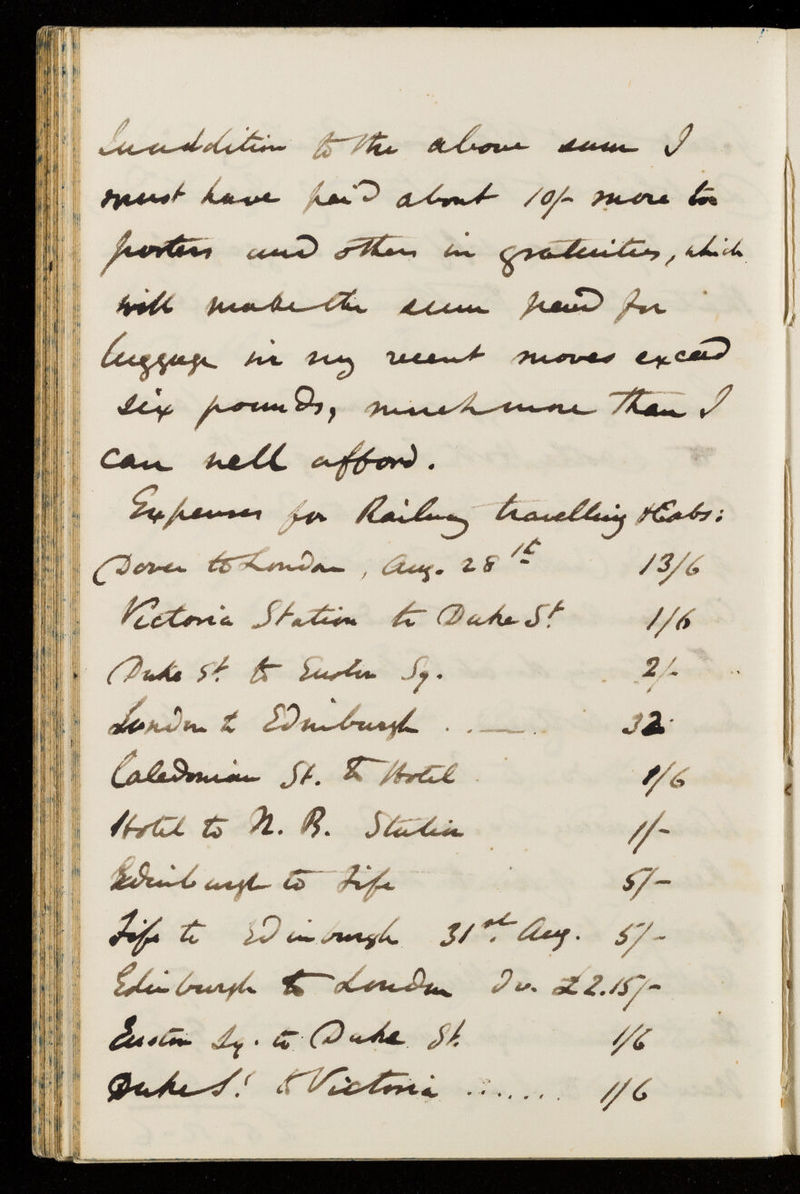 In addition to the above sum I
must have paid about 10/- more to
porters and others in gratuities, which
will make the sum paid for
luggage in my recent moves exceed
six pounds, much more than I
can well afford.
Expenses for Railway travelling & Cabs:
Dover to London, Aug. 28th 13/6
Victoria Station to Duke St. 1/6
Duke St. to Euston Sq. 2/-
London to Edinburgh 32
Caledonian St. to Hotel 1/6
Hotel to N. B. Station 1/-
Edinburgh to Fife 5/-
Fife to Edinburgh 31st Aug. 5/-
Edinburgh to London Do. £2.15/-
Euston Sq. to Duke St. 1/6
Duke St. to Victoria ....... 1/6